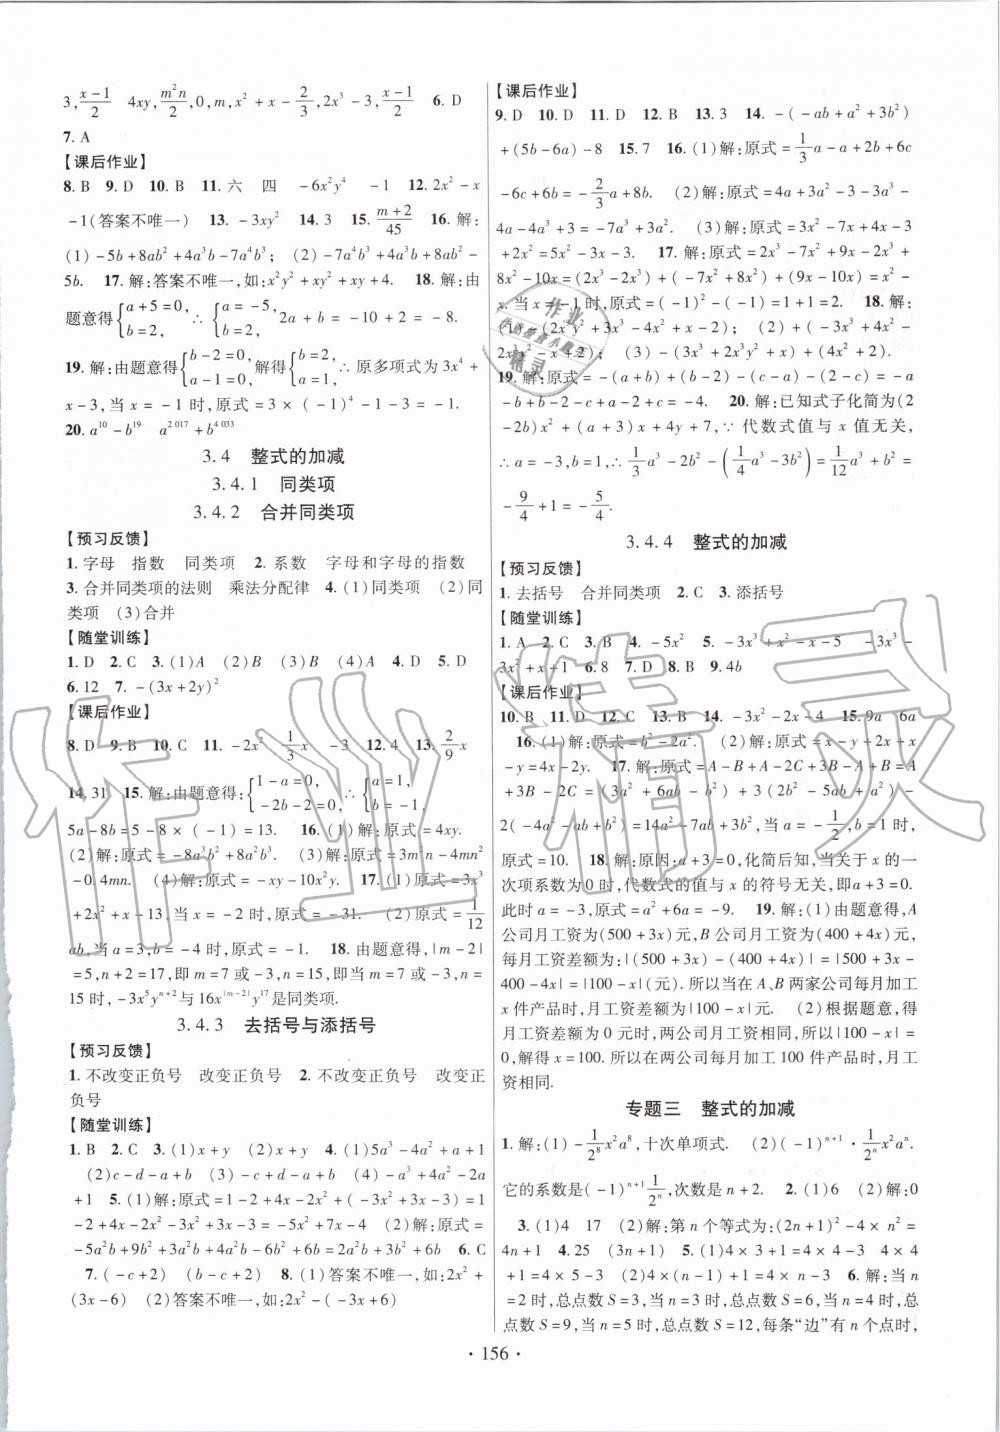 3,(x-1)/2　4xy,(m²n)/2,0,m,x²+x-2/3,2x³-3,(x-1)/2　6. D
7. A
【课后作业】
8. B　9. D　10. B　11. 六　四　-6x²y⁴　-1　12. 2x²-x
-1(答案不唯一)　13. -3xy²　14. 3　15. (m+2)/45　16. 解:
(1)-5b+8ab²+4a³b-7a⁴b³; (2)-7a⁴b³+4a³b+8ab²-
5b.　17. 解:答案不唯一,如:x²y²+xy²+xy+4.　18. 解:由
题意得{a+5=0, b=2, ∴{a=-5, b=2, 2a+b=-10+2=-8.
19. 解:由题意得{b-2=0, a-1=0, {b=2, a=1. ∴原多项式为3x⁴+
x-3,当x=-1时,原式=3×(-1)⁴-1-3=-1.
20. a¹⁰-b¹⁹　a²⁰¹⁷+b⁴⁰³³
3.4　整式的加减
3.4.1　同类项
3.4.2　合并同类项
【预习反馈】
1. 字母　指数　同类项　2. 系数　字母和字母的指数
3. 合并同类项的法则　乘法分配律　4. (1)同类项　(2)同
类项　(3)合并
【随堂训练】
1. D　2. C　3. (1)A　(2)B　(3)B　(4)A　4. D　5. D
6. 12　7. -(3x+2y)²
【课后作业】
8. D　9. B　10. C　11. -2x²　1/3 x　-3　12. 4　13. 2/9 x
14. 31　15. 解:由题意得:{1-a=0, -2b-2=0, ∴{a=1, b=-1,
5a-8b=5-8×(-1)=13.　16. (1)解:原式=4xy.
(2)解:原式=-8a³b²+8a²b³.　(3)解:原式=3m²n-4mn²
-0.4mn.　(4)解:原式=-xy-10x².　17. (1)原式=3x³
+2x²+x-13,当x=-2时,原式=-31. (2)原式=1/12
ab,当a=3,b=-4时,原式=-1.　18. 由题意得,|m-2|
=5,n+2=17,即m=7或m=-3,n=15. ∴当m=7或m=-3,n=
15时,-3x⁵yⁿ⁺²与16x^|m-2|y¹⁷是同类项.
3.4.3　去括号与添括号
【预习反馈】
1. 不改变正负号　改变正负号　2. 不改变正负号　改变正
负号
【随堂训练】
1. B　2. C　3. (1)x+y　(2)x+y　4. (1)5a³-4a²+a+1
(2)c-d-a+b　(3)-c+d-a+b　(4)-a³+4a²-2a
+1　5. (1)解:原式=1-4x-2x²+(-3x²+3x-3)=1
-2-4x+3x-2x²-3x²=-5x²-x-2. (2)解:原式=
-5a²b+9ab²+3a²b+4ab²-6b²+6b²=-2a²b+13ab².　6. C
7. (-c+2)　(b-c+2)　8. (1)答案不唯一,如:2x²+
(3x-6)　(2)答案不唯一,如:2x²-(-3x+6)
【课后作业】
9. D　10. D　11. D　12. B　13. 3　14. -(-ab+a²+3b²)
+(5b-6a)-8　15. 7　16. (1)解:原式=1/3 a-a+2b+6c
-6c+6b=-2/3 a+8b.　(2)解:原式=4a+3a²-3-3a³-
4a-4a³+3=-7a³+3a².　(3)解:原式=3x²-7x+4x-3
+2x²=5x²-3x-3.　17. 解:原式=2x³-7x²+9x-2x³+
8x²-10x=(2x³-2x³)+(-7x²+8x²)+(9x-10x)=x²-
x. 当x=-1时,原式=(-1)²-(-1)=1+1=2.　18. 解:
(1)-(2x³y²+3x³-4x²+x-2); (2)+(-3x³+4x²-
2x³y²-x+2); (3)-(3x³+2x³y²)+(4x²-x+2).
19. 解:原式=-(a+b)+(b-2)-(c-a)-(2-c)=-a
-b+b-2-c+a-2+c=-4.　20. 解:已知式子化简为(2
-2b)x²+(a+3)x+4y+7,∵代数式值与x值无关,
∴a=-3,b=1,∴1/3 a³-2b²-(1/4 a³-3b²)=1/12 a³+b²=
-9/4+1=-5/4.
3.4.4　整式的加减
【预习反馈】
1. 去括号　合并同类项　2. C　3. 添括号
【随堂训练】
1. A　2. C　3. B　4. -5x²　5. -3x³+x²-x-5　-3x³-
3x²+x+1　6. 8　7. D　8. B　9. 4b
【课后作业】
10. B　11. D　12. C　13. B　14. -3x²-2x-4　15. 9a　6a
16. (1)解:原式=b²-2a².　(2)解:原式=x-y+2x+x
-y=4x-2y.　17. 解:原式=A-B+A-2C+3B-A+B=A
+3B-2C=(3a²+6ab-b²)+3(2b²-5ab+a²)-
2(-4a²-ab+b²)=14a²-7ab+3b²,当a=-1/2,b=1时,
原式=10.　18. 解:原因:a+3=0,化简后知,当关于x的一
次项系数为0时,代数式的值与x的符号无关,即a+3=0.
此时a=-3,原式=a²+6a=-9.　19. 解:(1)由题意得,A
公司月工资为(500+3x)元,B公司月工资为(400+4x)元,
每月工资差额为:|(500+3x)-(400+4x)|=|500+3x-
400-4x|=|100-x|(元). ∴A、B两家公司每月加工
x件产品时,月工资差额为|100-x|元.　(2)根据题意,得
月工资差额为0元时,两公司月工资相同,所以|100-x|=
0,解得x=100. 所以在两公司每月加工100件产品时,月工
资相同.
专题三　整式的加减
1. 解:(1)-1/2⁸ x²a⁸,十次单项式.　(2)(-1)ⁿ⁺¹·1/2ⁿ x²aⁿ.
它的系数是(-1)ⁿ⁺¹ 1/2ⁿ,次数是n+2.　2. (1)6　(2)解:0
3. (1)4　17　(2)解:第n个等式为:(2n+1)²-4×n²=
4n+1　4. 25　(3n+1)　5. (1)4×3+1=4×4-3　4×4
+1=4×5-3　(2)4×(n-1)+1=4×n-3　6. 解:当n
=2时,总点数S=3,当n=3时,总点数S=6,当n=4时,总
点数S=9,当n=5时,总点数S=12,每条“边”有n个点时,
· 156 ·
作业精灵